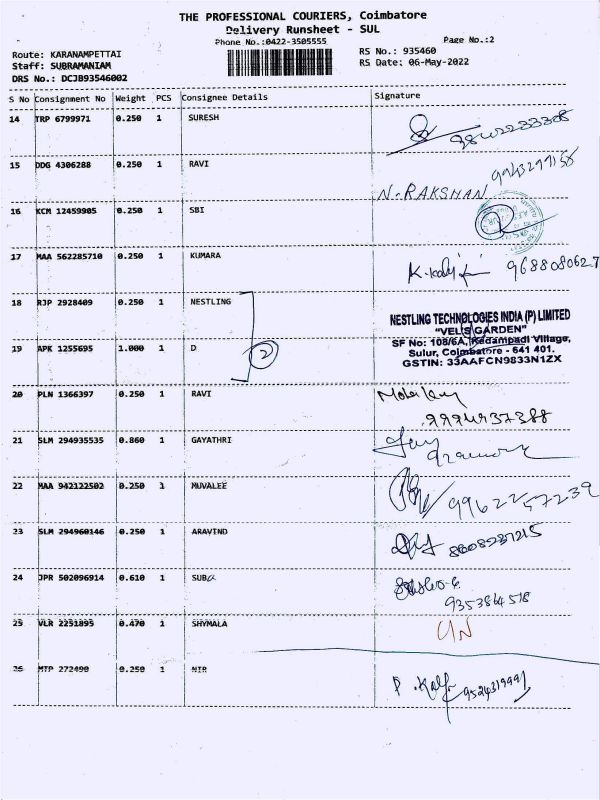 THE PROFESSIONAL COURIERS, Coimbatore
Delivery Runsheet - SUL
Phone No.:0422-3505555
Page No.:2
Route: KARANAMPETTAI
RS No.: 935460
Staff: SUBRAMANIAM
RS Date: 06-May-2022
DRS No.: DCJB93546002
S No Consignment No Weight PCS Consignee Details Signature
14 TRP 6799971 0.250 1 SURESH
15 DDG 4306288 0.250 1 RAVI
N-RAKSHAN
16 KCM 12459905 0.250 1 SBI
17 MAA 562285710 0.250 1 KUMARA
9688080627
18 RJP 2928409 0.250 1 NESTLING
NESTLING TECHNOLOGIES INDIA (P) LIMITED
"VEL'S GARDEN"
SF No: 108/6A, Kadampadi Village,
Sulur, Coimbatore - 641 401.
GSTIN: 33AAFCN9833N1ZX
19 APK 1255695 1.000 1 D
2
20 PLN 1366397 0.250 1 RAVI
21 SLM 294935535 0.860 1 GAYATHRI
22 MAA 942122502 0.250 1 MUVALEE
9962257239
23 SLM 294960146 0.250 1 ARAVIND
8608237215
24 JPR 502096914 0.610 1 SUBA
25 VLR 2231895 0.470 1 SHYMALA
UN
26 MTP 272490 0.250 1 NIR
9524319991